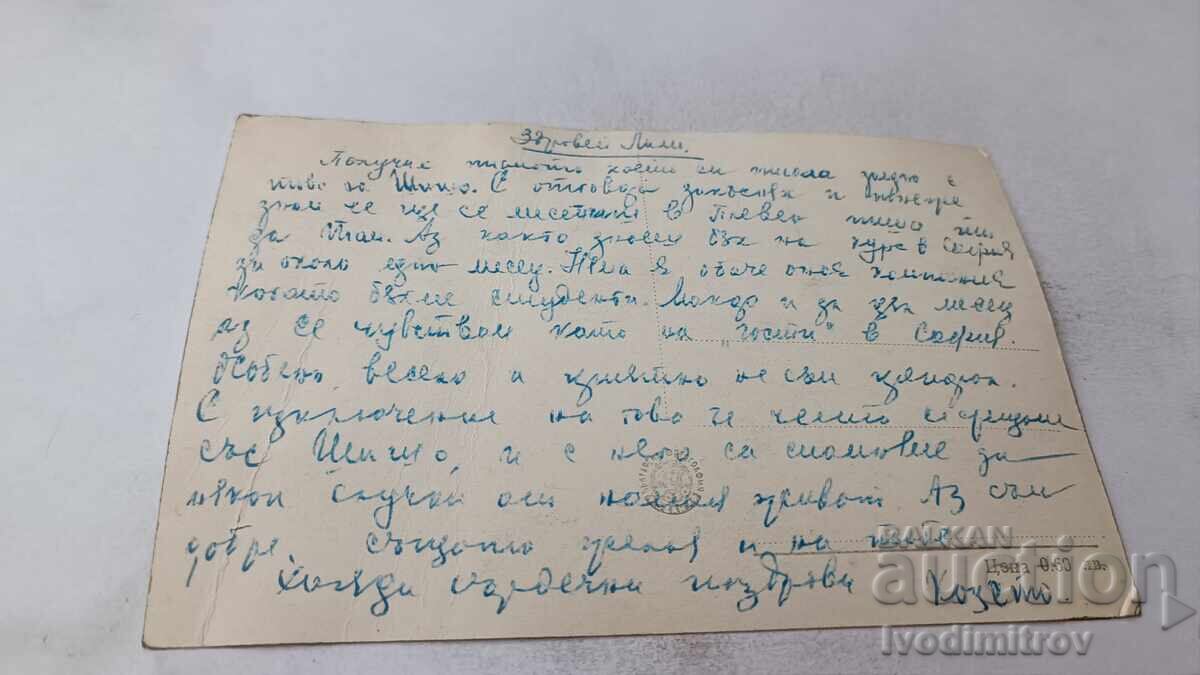 Здравей Лили.
Получих писмото което си писала заедно с
това на Шишо. С отговора закъснях и понеже
знам че ще се местите в Плевен пиша ти
за там. Аз както знаеш бях на курс в София
за около един месец. Няма я обаче оная компания
когато бяхме студенти. Макар и за два месец
аз се чувствам като на "гости" в София.
Особено весело и приятно не съм прекарал.
С изключение на това че често се срещаме
със Шишо, и с него си спомняме за
някои случаи от нашия живот. Аз съм
добре, същото желая и на тебе.
Хиляди сърдечни поздрави Хозето.
Цена 0.60 лв.
BALKAN
auction
Ivodimitrov